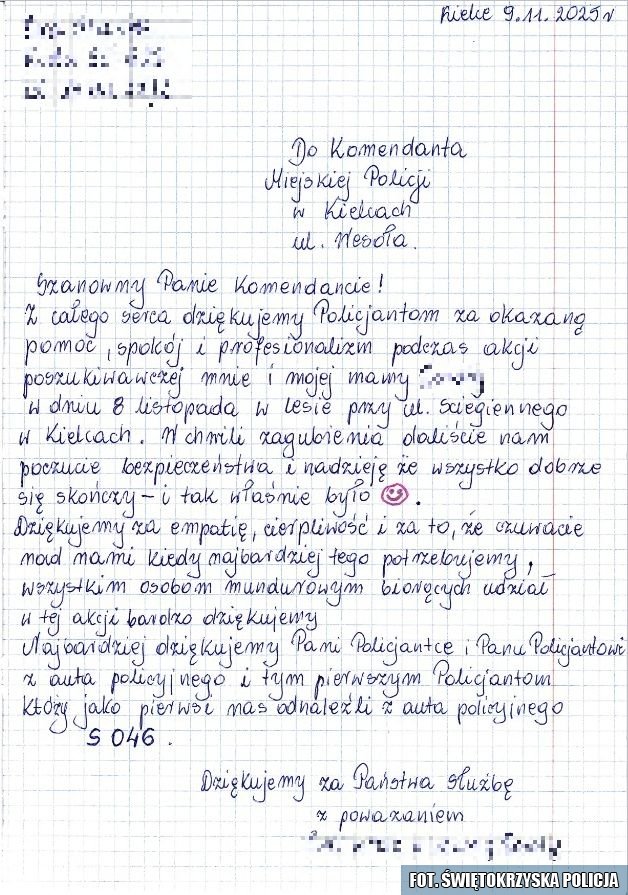 Kielce 9.11.2025r
Do Komendanta
Miejskiej Policji
w Kielcach
ul. Wesoła.
Szanowny Panie Komendancie!
Z całego serca dziękujemy Policjantom za okazaną
pomoc, spokój i profesionalizm podczas akcji
poszukiwawczej mnie i mojej mamy
w dniu 8 listopada w lesie przy ul. Ściegiennego
w Kielcach. W chwili zagubienia daliście nam
poczucie bezpieczeństwa i nadzieję że wszystko dobrze
się skończy – i tak właśnie było ☺.
Dziękujemy za empatię, cierpliwość i za to, że czuwacie
nad nami kiedy najbardziej tego potrzebujemy,
wszystkim osobom mundurowym biorących udział
w tej akcji bardzo dziękujemy
Najbardziej dziękujemy Pani Policjantce i Panu Policjantowi
z auta policyjnego i tym pierwszym Policjantom
którzy jako pierwsi nas odnaleźli z auta policyjnego
S 046.
Dziękujemy za Państwa służbę
z poważaniem
FOT. ŚWIĘTOKRZYSKA POLICJA